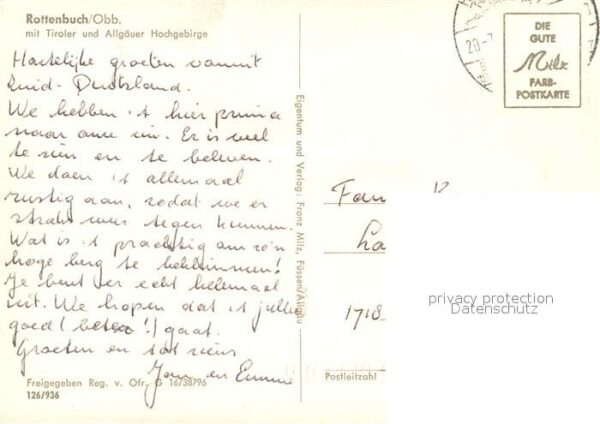 Rottenbuch/Obb.
mit Tiroler und Allgäuer Hochgebirge
Hartelijke groeten vanuit
Zuid-Duitsland.
We hebben 't hier prima
naar onze zin. Er is veel
te zien en te beleven.
We doen 't allemaal
rustig aan, zodat we er
straks weer tegen kunnen.
Wat is 't prachtig om zo'n
hoge berg te beklimmen!
Je bent er echt helemaal
uit. We hopen dat 't jullie
goed (beter!) gaat.
Groeten en tot ziens
Jan en
Freigegeben Reg. v. Ofr. G 16/38796
126/936
Eigentum und Verlag: Franz Milz, Füssen/Allgäu
20
DIE
GUTE
Milz
FARB-
POSTKARTE
Fam.
1718
Postleitzahl
privacy protection
Datenschutz